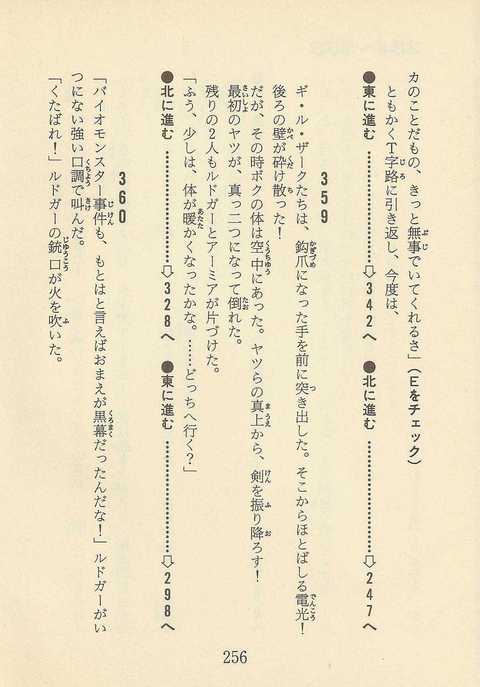 カのことだもの、きっと無事でいてくれるさ」（Ｅをチェック）
ともかくＴ字路に引き返し、今度は、
●東に進む…………⇨３４２へ　●北に進む…………⇨２４７へ
３５９
ギ・ル・ザークたちは、鈎爪になった手を前に突き出した。そこからほとばしる電光！
後ろの壁が砕け散った！
だが、その時ボクの体は空中にあった。ヤツらの真上から、剣を振り降ろす！
最初のヤツが、真っ二つになって倒れた。
残りの２人もルドガーとアーミアが片づけた。
「ふう、少しは、体が暖かくなったかな。……どっちへ行く？」
●北に進む…………⇨３２８へ　●東に進む…………⇨２９８へ
３６０
「バイオモンスター事件も、もとはと言えばおまえが黒幕だったんだな！」ルドガーがい
つにない強い口調で叫んだ。
「くたばれ！」ルドガーの銃口が火を吹いた。
256